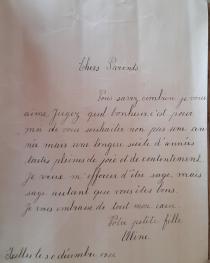 Chers Parents
Vous savez combien je vous
aime. Jugez quel bonheur c'est pour
moi de vous souhaiter non pas une an-
née mais une longue suite d'années
toutes pleines de joie et de contentement.
Je veux m'efforcer d'être sage, mais
sage autant que vous êtes bons.
Je vous embrasse de tout mon cœur.
Votre petite fille
Ixelles le 30 décembre